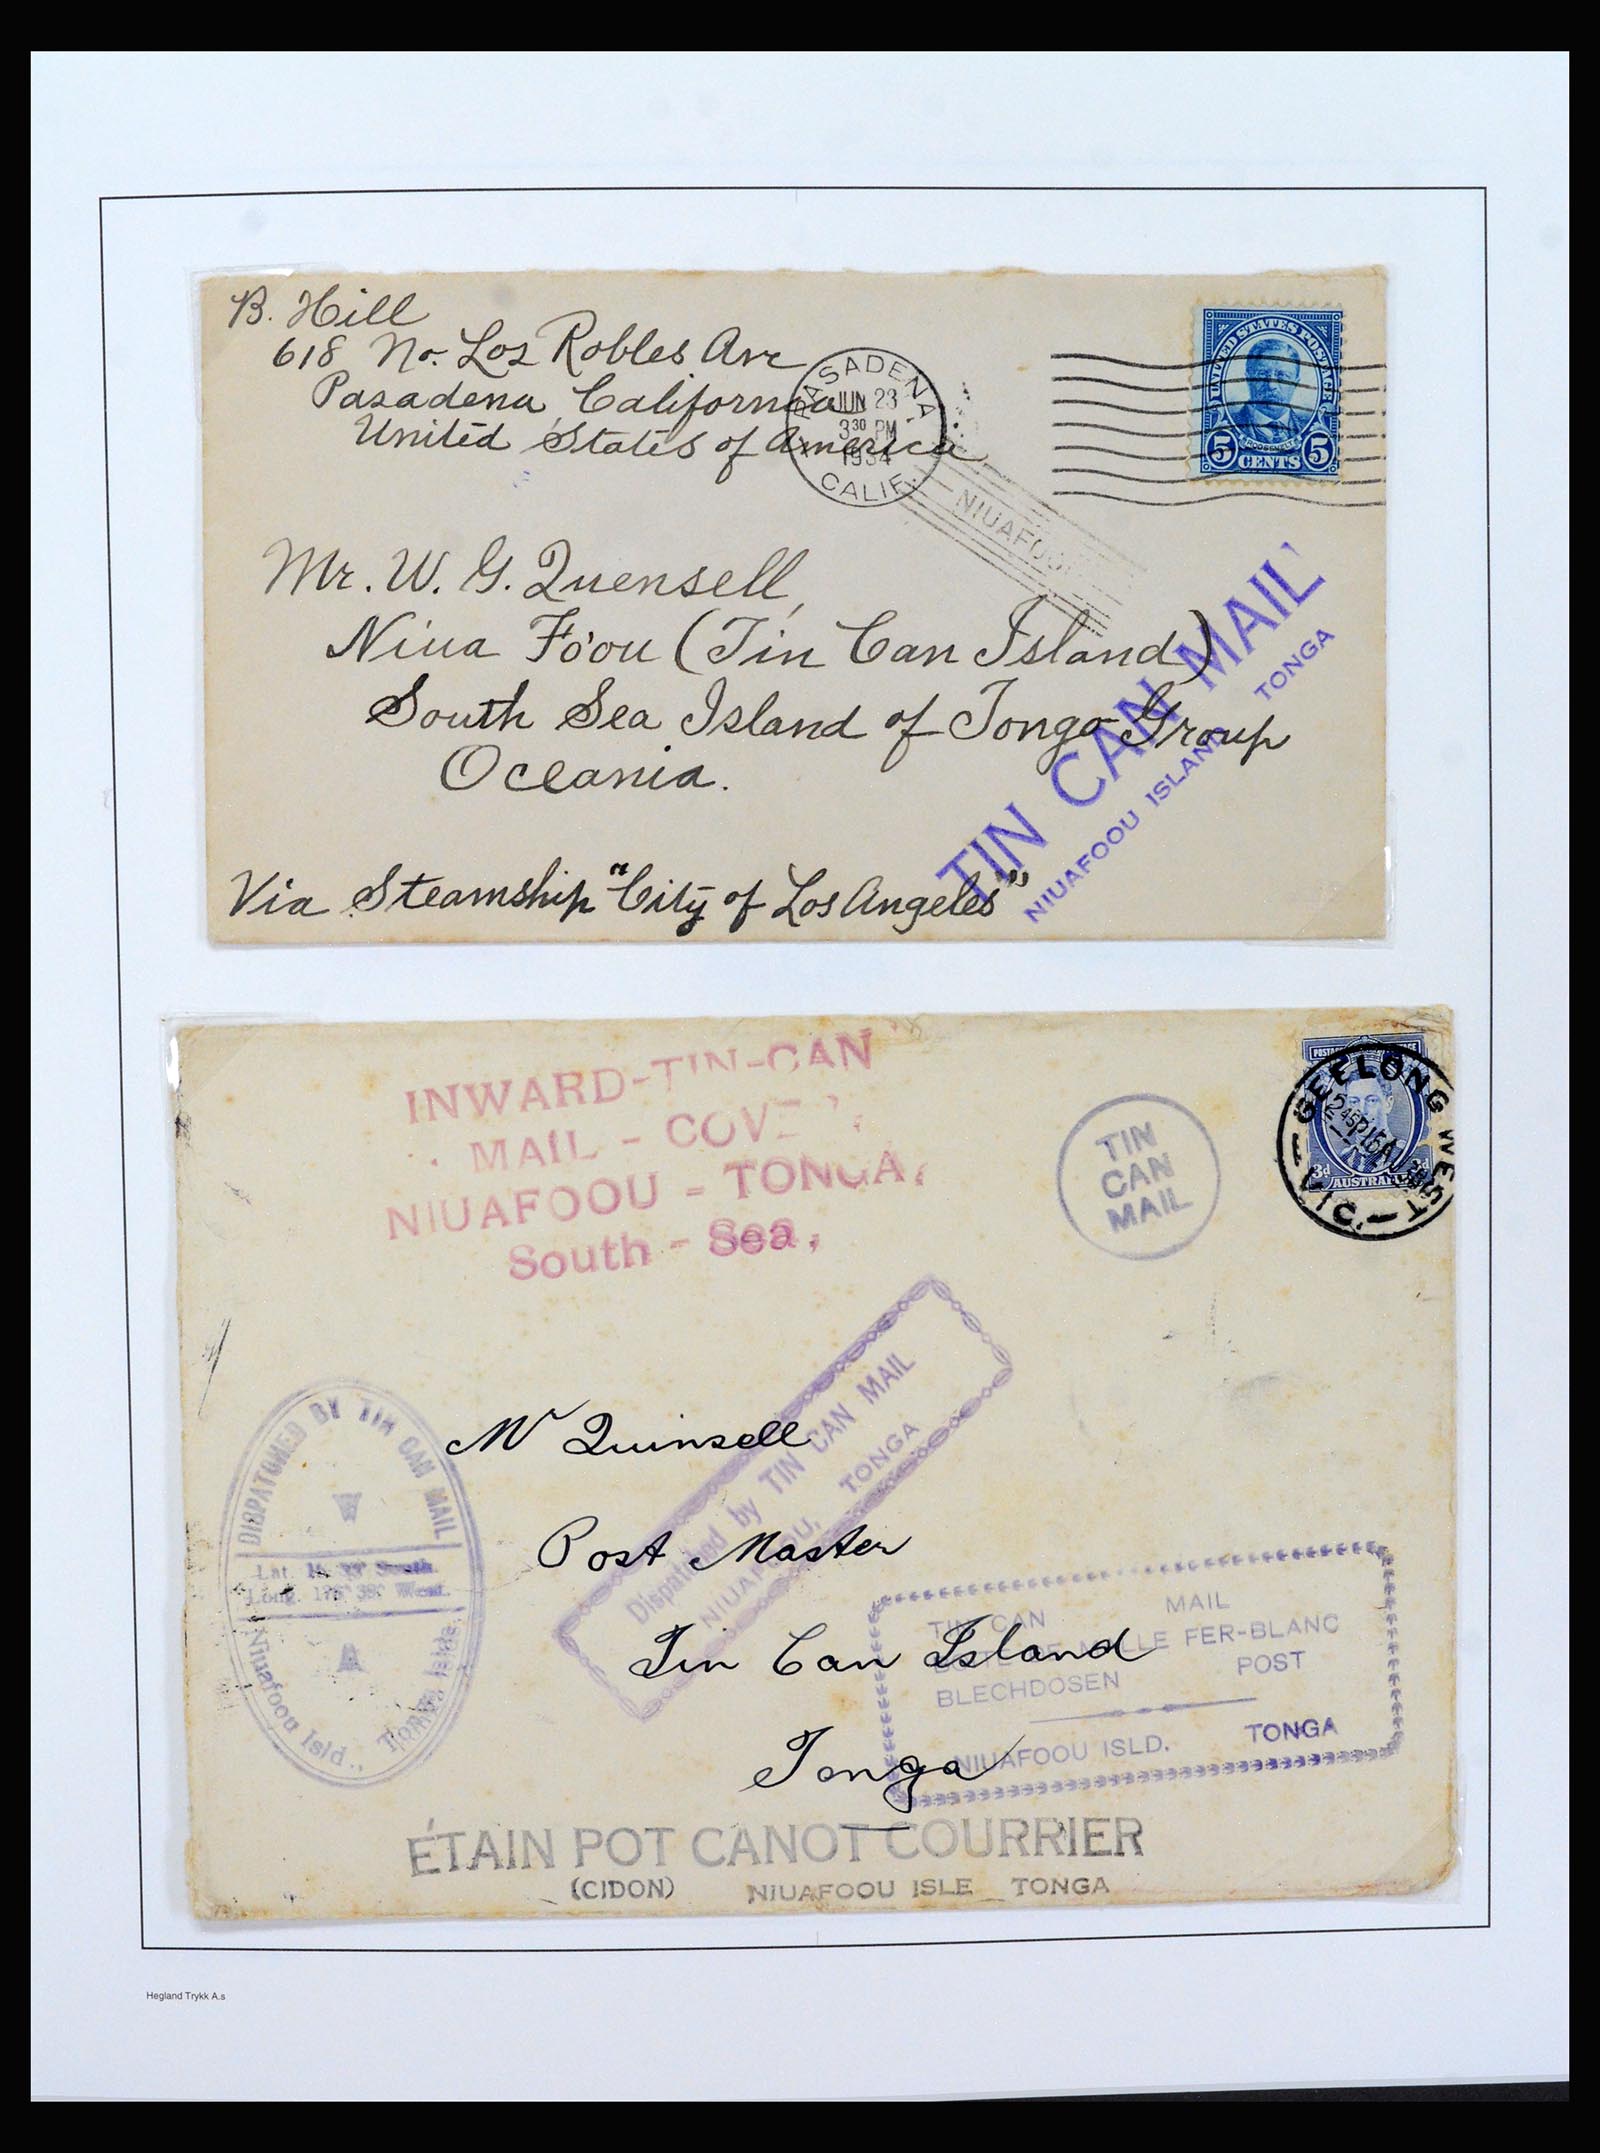 B. Hill
618 No. Los Robles Ave
Pasadena, California
United States of America
PASADENA
JUN 23
3 30 PM
1934
CALIF.
UNITED STATES POSTAGE
ROOSEVELT
5 CENTS 5
NIUAFOOU
Mr. W. G. Quensell,
Niua Fo'ou (Tin Can Island)
South Sea Island of Tonga Group
Oceania.
Via Steamship "City of Los Angeles"
TIN CAN MAIL
NIUAFOOU ISLAND TONGA
INWARD-TIN-CAN
MAIL - COVE
NIUAFOOU - TONGA,
South - Sea,
TIN
CAN
MAIL
POSTAGE
3d AUSTRALIA
GEELONG WEST
VIC.
DISPATCHED BY TIN CAN MAIL
Lat. South.
Long. 175° 38' West.
Niuafoou Isld., Tonga Islds.
Dispatched by TIN CAN MAIL
NIUAFOOU, TONGA
Mr Quinsell
Post Master
Tin Can Island
Tonga
TIN CAN MAIL
FER-BLANC
BLECHDOSEN POST
NIUAFOOU ISLD. TONGA
ÉTAIN POT CANOT COURRIER
(CIDON) NIUAFOOU ISLE TONGA
Hegland Trykk A.s